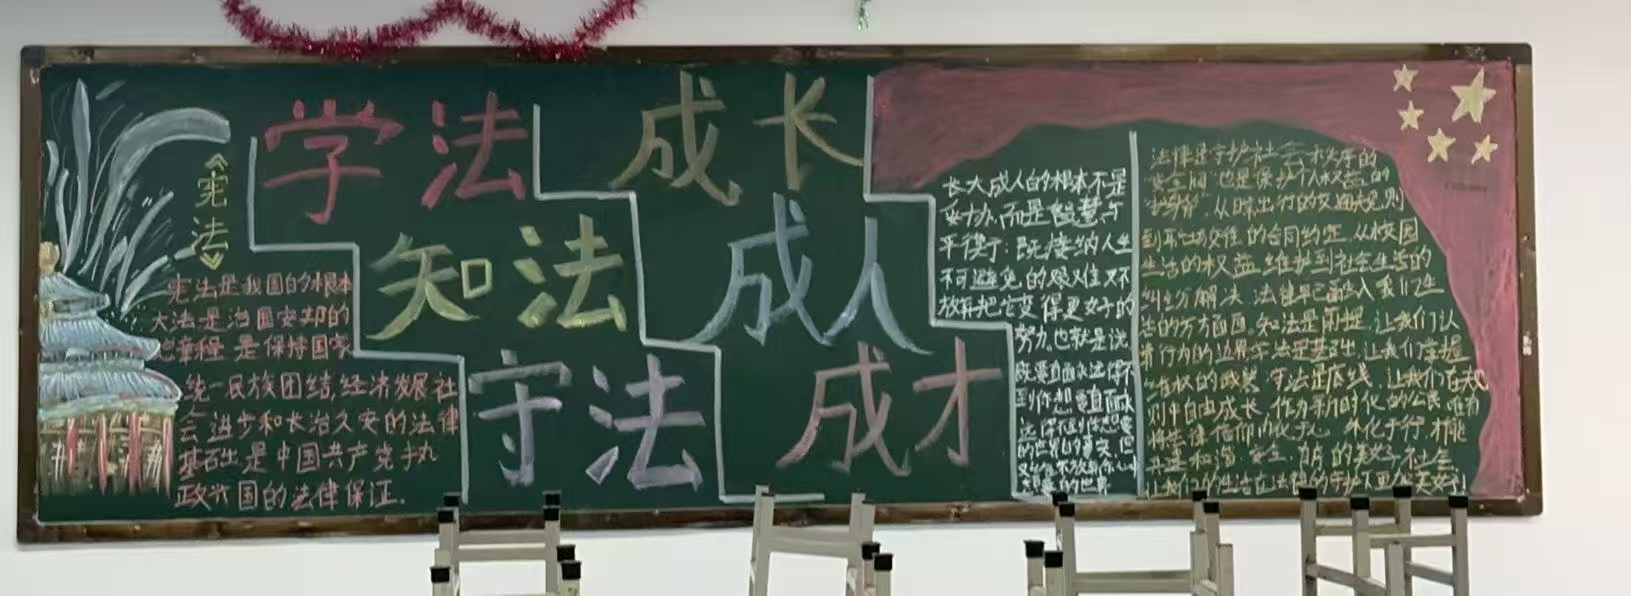 学法 成长
知法 成人
守法 成才
《宪法》
宪法是我国的根本
大法是治国安邦的
总章程 是保持国家
统一民族团结,经济发展社
会进步和长治久安的法律
基础是中国共产党执
政兴国的法律保证.
长大成人的根本不是
妥协,而是智慧与
平衡了:既接纳人生
不可避免的艰难又不
放弃把它变得更好的
努力.也就是说
既要直面永远得不
到你想要直面永
远得不到你想要
的世界的事实,但
又绝不放弃你心中
想要的世界
法律是守护社会秩序的
安全网 也是保护个人权益的
从日常出行的交通规则
到市场交往的合同约定.从校园
生活的权益维护到社会生活的
纠纷解决 法律早已融入我们生
活的方方面面.知法是前提,让我们认
清行为的边界学法是基础,让我们掌握
维权的武器 守法是底线,让我们在规
则中自由成长.作为新时代的公民,唯有
将法律信仰内化于心 外化于行,才能
共建和谐 安全 有序的美好社会
让我们的生活在法律的守护下更加美好!